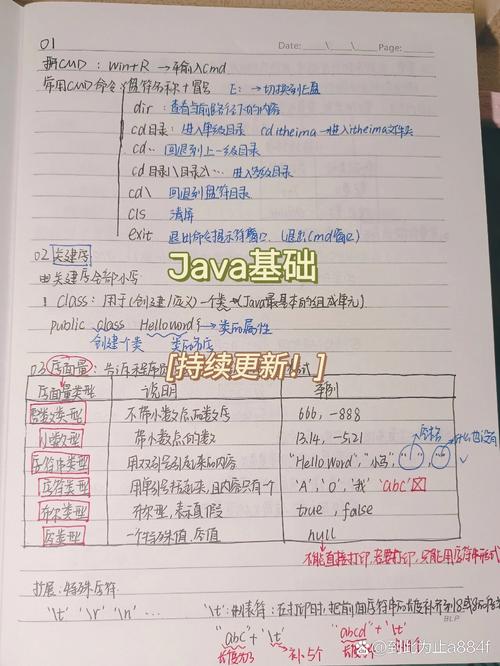 01
Date: \ \ Page:
打开CMD：win+R → 输入cmd
常用CMD命令：盘符名称+冒号 E：→切换到E盘
dir：查看当前路径下的内容
cd目录：进入单级目录 cd itheima→进入itheima文件夹
cd.. 回退到上一级目录
cd 目录1\目录2\... 进入多级目录
cd\ 回退到盘符目录
cls 清屏
exit 退出命令提示符窗口（退出cmd窗口）
02 关键字
Java基础
由关键字全部小写
1 class：用于（创建/定义）一个类（Java最基本的组成单元）
public class Helloword { → 类的属性
创建一个类 类的名字
[持续更新！]
03 字面量：告诉程序员
字面量类型 说明 举例
整数类型 不带小数点的数字 666，-888
小数类型 带小数点的数 13.14，-5.21
空格
什么也没有
字符串类型 用双引号引起来的内容 "HelloWord"，"小马"，" "，""
字符类型 用单引号括起来，且内容只有一个 'A'，'0'，'我' 'abc'
布尔类型 布尔型，表示真假 true，false
空类型 一个特殊值，空值 null
不能直接打印，若要打印，只能用字符串形式
扩展：特殊字符
'\t' '\r' '\n' ... '\t'：制表符：在打印时，把前面字符串的长度补齐到8或8的
BLP
"abc"+'\t' "abcd"+'\t'
长度为3 补5个
@到此为止a884f